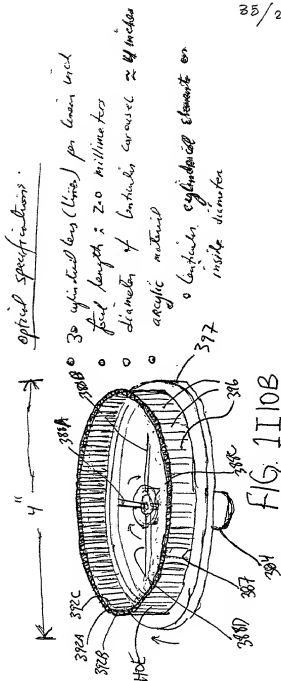 35/2
optical specifications:
• 30 cylindrical lens (lines) per linear inch
• focal length ≈ 2.0 millimeters
• diameter of lenticular carousel ≈ 4 inches
• acrylic material
• lenticular cylindrical elements on
inside diameter
4"
388A
388B
392C
392A
392B
HOE
388D
387
384
388C
396
397
FIG. 1I10B